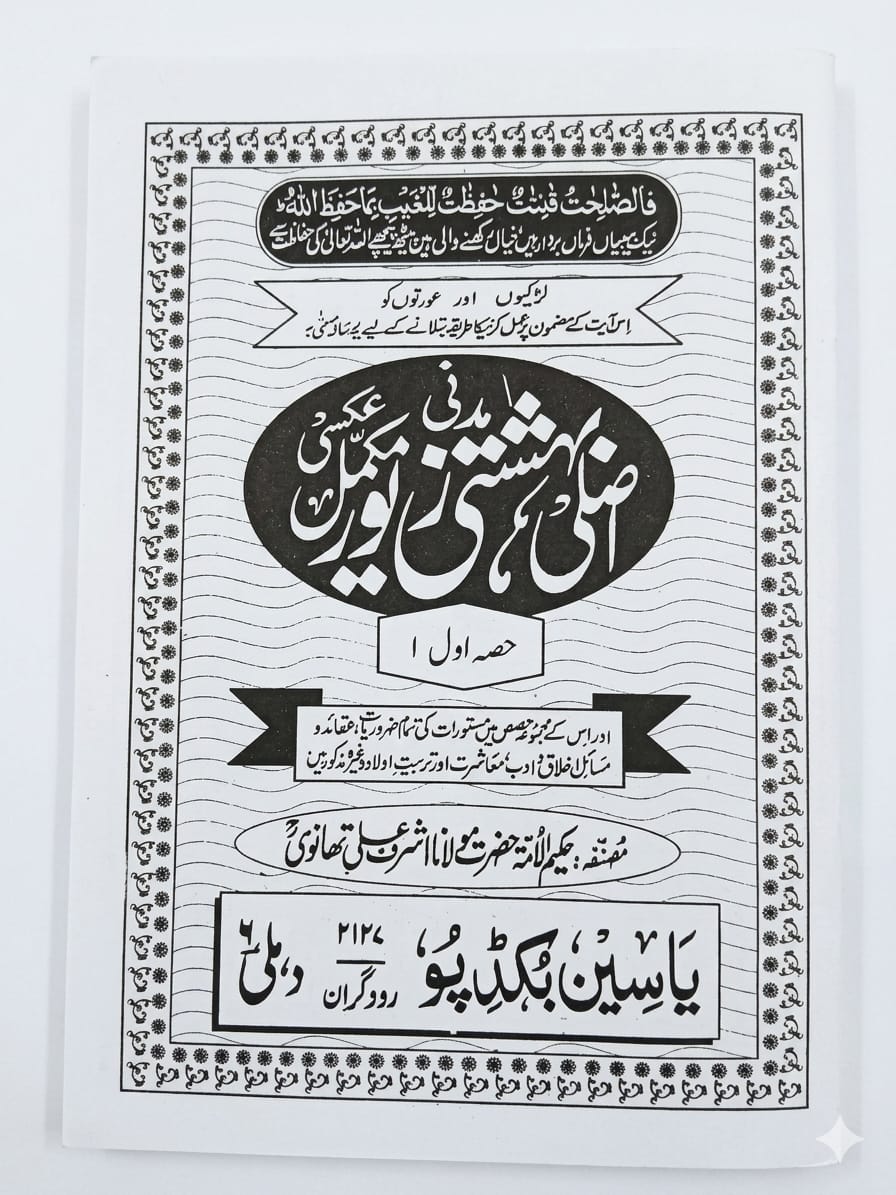 فَالصّٰلِحٰتُ قٰنِتٰتٌ حٰفِظٰتٌ لِّلْغَیْبِ بِمَا حَفِظَ اللهُ ؕ
نیک بیبیاں فرماں بردار ہیں، خیال رکھنے والی ہیں پیٹھ پیچھے اللہ تعالیٰ کی حفاظت سے
لڑکیوں اور عورتوں کو
اِس آیت کے مضمون پر عمل کرنیکا طریقہ بتلانے کے لیے یہ رسالہ مسمّٰی بہ
اصلی مدنی بہشتی زیور مکمّل عکسی
حصہ اول ۱
اور اِس کے مجموعہ حصص میں مستورات کی تمام ضروریات، عقائد و
مسائل اخلاق و ادب، معاشرت اور تربیتِ اولاد وغیرہ مذکور ہیں
مُصنّفہ: حکیم الاُمّۃ حضرت مولانا اشرف علی تھانویؒ
یَاسِین بُکڈِپُو ۲۱۲۷ رودگران دہلی ۶